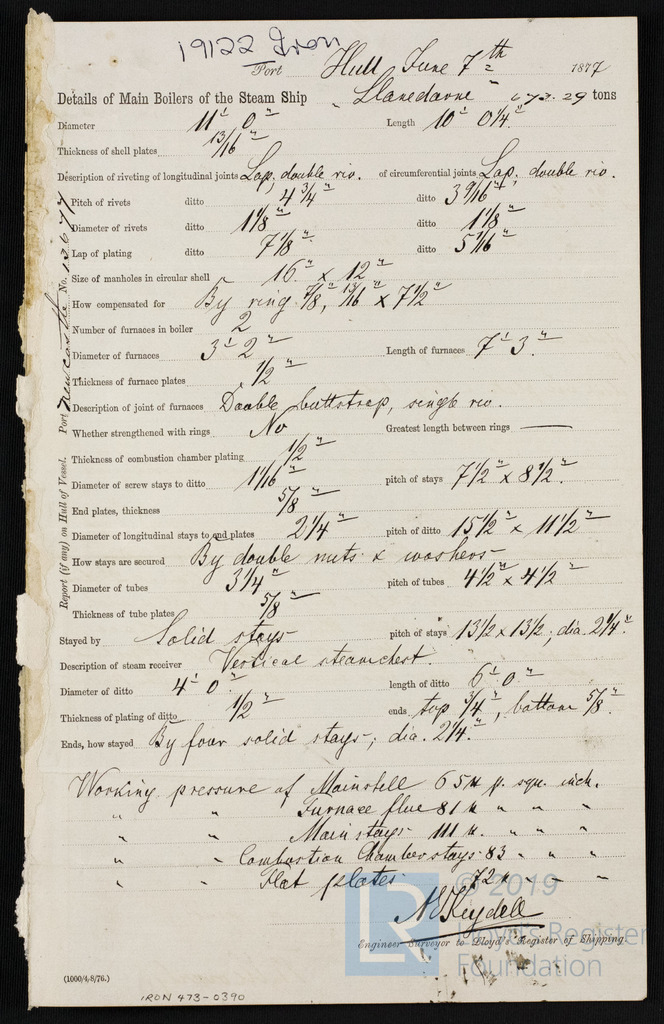 19122 Iron
Port Hull June 7th 1877
Details of Main Boilers of the Steam Ship " Llanedarne " 673.29 tons
Diameter 11' 0" Length 10' 0 1/4"
Thickness of shell plates 13/16"
Description of riveting of longitudinal joints Lap, double riv. of circumferential joints Lap, double riv.
Pitch of rivets ditto 4 3/4" ditto 3 9/16"
Diameter of rivets ditto 1 1/8" ditto 1 1/8"
Lap of plating ditto 7 1/8" ditto 5 7/16"
Size of manholes in circular shell 16" x 12"
How compensated for By ring 7/8", 13/16" x 7 1/2"
Number of furnaces in boiler 2
Diameter of furnaces 3' 2" Length of furnaces 7' 3"
Thickness of furnace plates 1/2"
Description of joint of furnaces Double buttstrap, single riv.
Whether strengthened with rings No Greatest length between rings —
Thickness of combustion chamber plating 1/2"
Diameter of screw stays to ditto 1 1/16" pitch of stays 7 1/2" x 8 1/2"
End plates, thickness 5/8"
Diameter of longitudinal stays to end plates 2 1/4" pitch of ditto 15 1/2" x 11 1/2"
How stays are secured By double nuts & washers
Diameter of tubes 3 1/4" pitch of tubes 4 1/2" x 4 1/2"
Thickness of tube plates 5/8"
Stayed by Solid stays pitch of stays 13 1/2 x 13 1/2; dia. 2 1/4".
Description of steam receiver Vertical steamchest.
Diameter of ditto 4' 0" length of ditto 6' 0"
Thickness of plating of ditto 1/2" ends top 3/4", bottom 5/8".
Ends, how stayed By four solid stays; dia. 2 1/4".
Working pressure of Mainshell 65 lb p. squ. inch.
" " Furnace flue 81 lb " " "
" " Main stays 111 lb. " " "
" " Combustion Chamber stays 83 " " "
" " Flat plates 72 " " "
Engineer Surveyor to Lloyd's Register of Shipping.
(1000/4/8/76.)
IRON 473-0390
Report (if any) on Hull of Vessel. Port Newcastle No. 12677
LR
© 2019
Lloyd's Register
Foundation